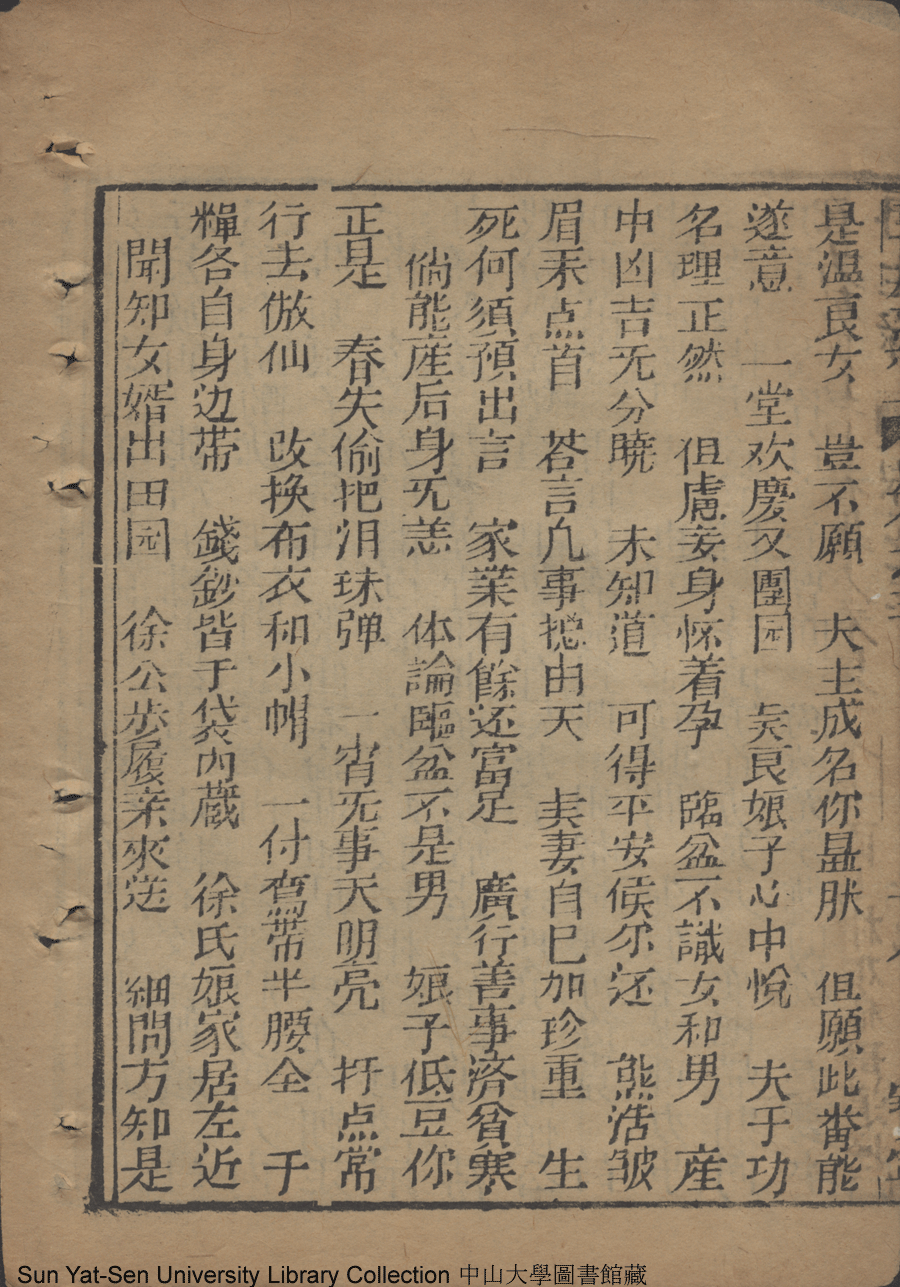 是温良女　豈不願　夫主成名你显胅　但願此畨能
遂意　一堂欢慶又團园　美良娘子心中悅　夫于功
名理正然　但慮妾身怀着孕　臨盆不識女和男　産
中凶吉无分曉　未知道　可得平安候尔还　熊浩皱
眉来点首　荅言凡事揔由天　美妻自巳加珍重　生
死何須預出言　家業有餘还富足　廣行善事済貧寒
倘能産后身无恙　体論臨盆不是男　娘子低豆你
正是　春失偷把泪珠弹　一宵无事天明亮　打点常
行去倣仙　改换布衣和小帽　一付鸾帶半腰全　于
糧各自身边帶　錢鈔皆于袋内藏　徐氏娘家居左近
聞知女婿出田园　徐公歩履亲來送　細問方知是
Sun Yat-Sen University Library Collection 中山大學圖書館藏